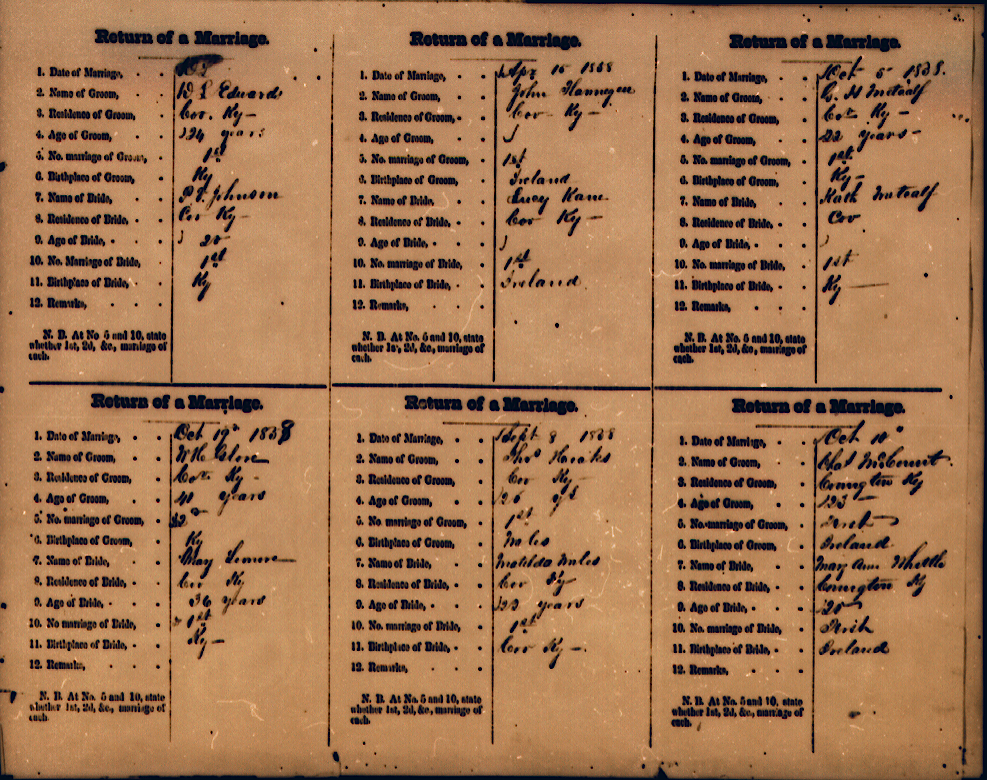 Return of a Marriage.
1. Date of Marriage,
2. Name of Groom, W L Edward
3. Residence of Groom, Cov. Ky —
4. Age of Groom 24 years
5. No. marriage of Groom, 1st
6. Birthplace of Groom, Ky
7. Name of Bride, Johnson
8. Residence of Bride, Cov Ky —
9. Age of Bride, 20
10. No. Marriage of Bride, 1st
11. Birthplace of Bride, Ky
12. Remarks,
N. B. At No. 5 and 10, state
whether 1st, 2d, &c., marriage of
each.
Return of a Marriage.
1. Date of Marriage, Apr 15 1858
2. Name of Groom, John Hannegan
3. Residence of Groom, Cov Ky —
4. Age of Groom,
5. No. marriage of Groom, 1st
6. Birthplace of Groom, Ireland
7. Name of Bride, Lucy Kane
8. Residence of Bride, Cov Ky —
9. Age of Bride,
10. No. marriage of Bride, 1st
11. Birthplace of Bride, Ireland
12. Remarks,
N. B. At No. 5 and 10, state
whether 1st, 2d, &c., marriage of
each.
Return of a Marriage.
1. Date of Marriage, Oct 5 1858.
2. Name of Groom, Metcalf
3. Residence of Groom, Ky —
4. Age of Groom, 22 years —
5. No. marriage of Groom, 1st
6. Birthplace of Groom, Ky —
7. Name of Bride, Kath Metcalf
8. Residence of Bride, Cov
9. Age of Bride,
10. No. marriage of Bride, 1st
11. Birthplace of Bride, Ky —
12. Remarks,
N. B. At No. 5 and 10, state
whether 1st, 2d, &c., marriage of
each.
Return of a Marriage.
1. Date of Marriage, Oct 19th 1858
2. Name of Groom,
3. Residence of Groom, Ky —
4. Age of Groom, 40 years
5. No. marriage of Groom, 2d
6. Birthplace of Groom, Ky
7. Name of Bride, May
8. Residence of Bride, Cov Ky
9. Age of Bride, 36 years
10. No marriage of Bride, 1st
11. Birthplace of Bride, Ky —
12. Remarks,
N. B. At No. 5 and 10, state
whether 1st, 2d, &c., marriage of
each.
Return of a Marriage.
1. Date of Marriage, Sept 8 1858
2. Name of Groom, Thos
3. Residence of Groom, Cov Ky —
4. Age of Groom, 26 yrs
5. No. marriage of Groom, 1st
6. Birthplace of Groom, Wales
7. Name of Bride, Matilda Miles
8. Residence of Bride, Cov Ky
9. Age of Bride, 23 years
10. No. marriage of Bride, 1st
11. Birthplace of Bride, Cov Ky —
12. Remarks,
N. B. At No. 5 and 10, state
whether 1st, 2d, &c., marriage of
each.
Return of a Marriage.
1. Date of Marriage, Oct 10th
2. Name of Groom, Chas McCourt
3. Residence of Groom, Covington Ky
4. Age of Groom, 23 —
5. No. marriage of Groom, First
6. Birthplace of Groom, Ireland
7. Name of Bride, Mary Ann
8. Residence of Bride, Covington Ky
9. Age of Bride, 20 —
10. No. marriage of Bride, First
11. Birthplace of Bride, Ireland
12. Remarks,
N. B. At No. 5 and 10, state
whether 1st, 2d, &c., marriage of
each.